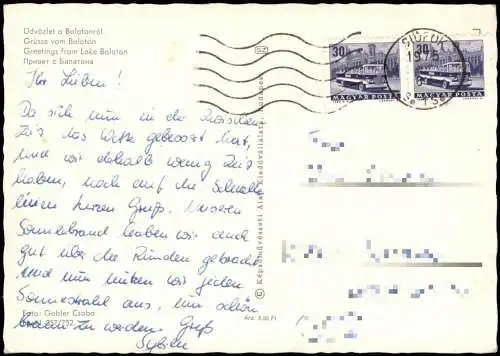 Üdvözlet a Balatonról
Grüsse vom Balaton
Greetings from Lake Balaton
Привет с Балатона
Ihr Lieben!
Da sich nun in der Zwischen-
zeit das Wetter gebessert hat,
und wir deshalb wenig Zeit
haben, noch auf die Schnelle
einen kurzen Gruß. Unseren
Sonnenbrand haben wir auch
gut über die Runden gebracht
und nun nutzen wir jeden
Sonnenstrahl aus, um schön
braun zu werden. Gruß
Foto: Gabler Csaba
Ára: 3,60 Ft
© Képzőművészeti Alap Kiadóvállalata, Budapest
SZ
30f
MAGYAR POSTA
30f
MAGYAR POSTA
SIÓFOK